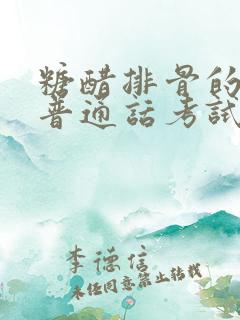 糖醋排骨的
普通话考试
李德信
未经同意禁止转载